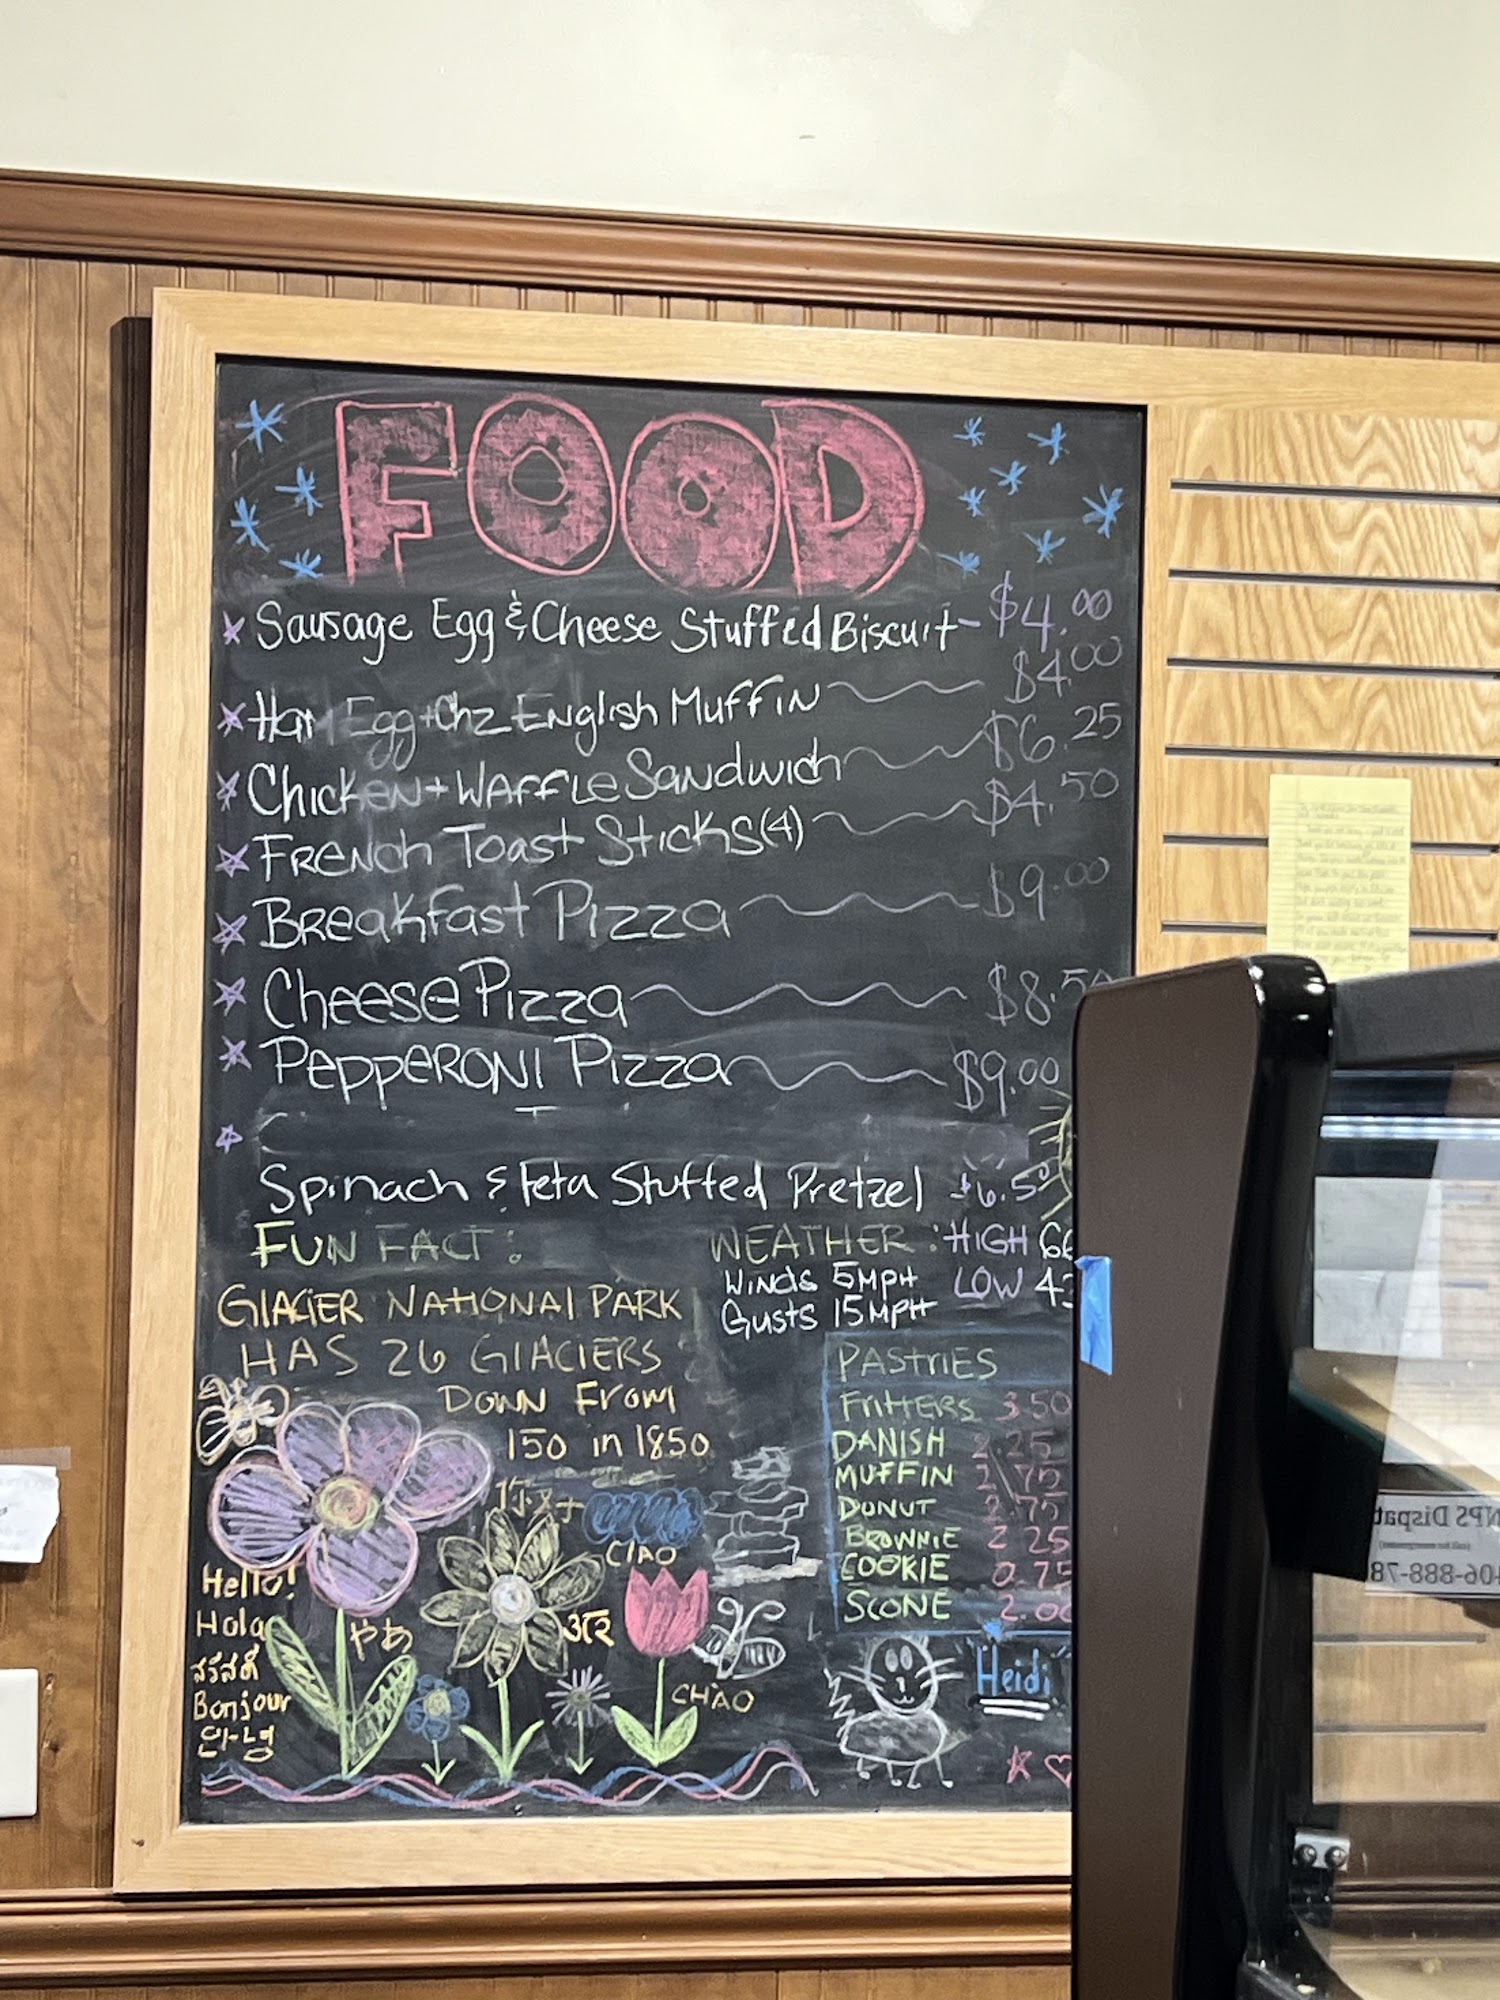 FOOD
Sausage Egg & Cheese Stuffed Biscuit - $4.00
Ham Egg + Chz English Muffin $4.00
Chicken + Waffle Sandwich $6.25
French Toast Sticks (4) $4.50
Breakfast Pizza $9.00
Cheese Pizza $8.50
Pepperoni Pizza $9.00
Spinach & Feta Stuffed Pretzel $6.50
FUN FACT:
GLACIER NATIONAL PARK
HAS 26 GLACIERS
DOWN FROM
150 in 1850
WEATHER: HIGH 66
Winds 5MPH LOW 43
Gusts 15MPH
PASTRIES
FRITTERS 3.50
DANISH 2.25
MUFFIN 2.75
DONUT 2.75
BROWNIE 2.25
COOKIE 0.75
SCONE 2.00
CIAO
Hello!
Hola
สวัสดี
Bonjour
안녕
やあ
CHAO
Heidi
NPS Dispat
406-888-78